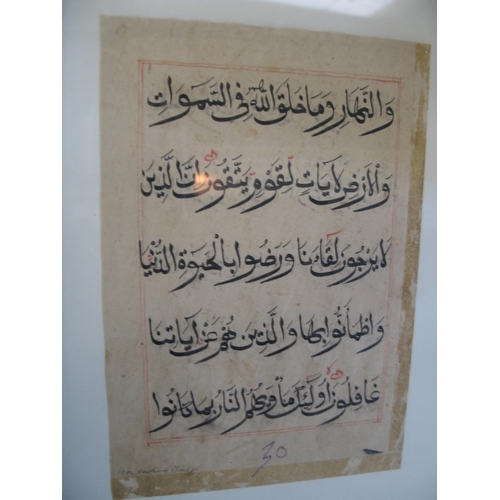 وَالنَّهَارِ وَمَا خَلَقَ اللّٰهُ فِى السَّمَوَاتِ
وَالْاَرْضِ لَاٰيَاتٍ لِقَوْمٍ يَتَّقُونَ اِنَّ الَّذِينَ
لَا يَرْجُونَ لِقَاءَنَا وَرَضُوا بِالْحَيٰوةِ الدُّنْيَا
وَاطْمَاَنُّوا بِهَا وَالَّذِينَ هُمْ عَنْ اٰيَاتِنَا
غَافِلُونَ اُولٰئِكَ مَاْوٰيهُمُ النَّارُ بِمَا كَانُوا
30